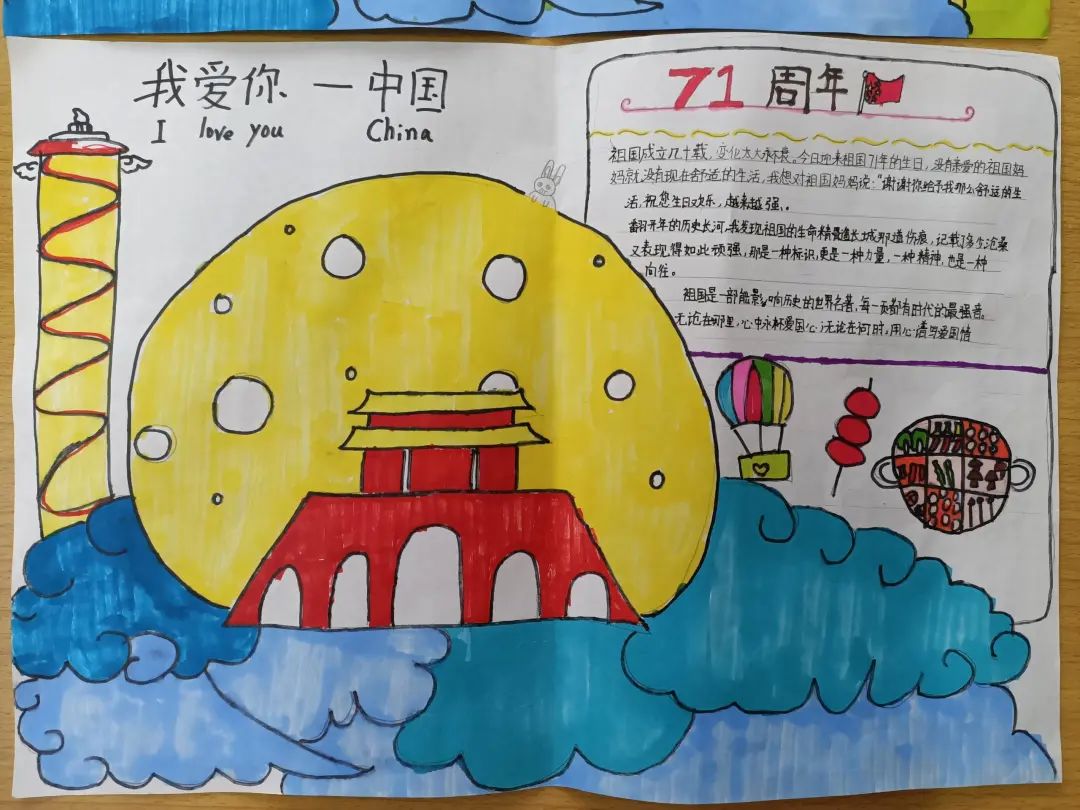 我爱你 — 中国
I love you China
71 周年
祖国成立几十载，变化太大永衰。今日迎来祖国71年的生日，没有亲爱的祖国妈
妈就没有现在舒适的生活，我想对祖国妈妈说："谢谢你给予我那么舒适的生
活，祝您生日欢乐，越来越强、。
翻开年的历史长河，我发现祖国的生命精长城那道伤痕，记载了多少沧桑
又表现得如此顽强，那是一种标识，更是一种力量，一种精神，也是一种
向往。
祖国是一部能影响历史的世界名著，每一页都有时代的最强音。
无论在哪里，心中永怀爱国心；无论在何时，用心谱写爱国情